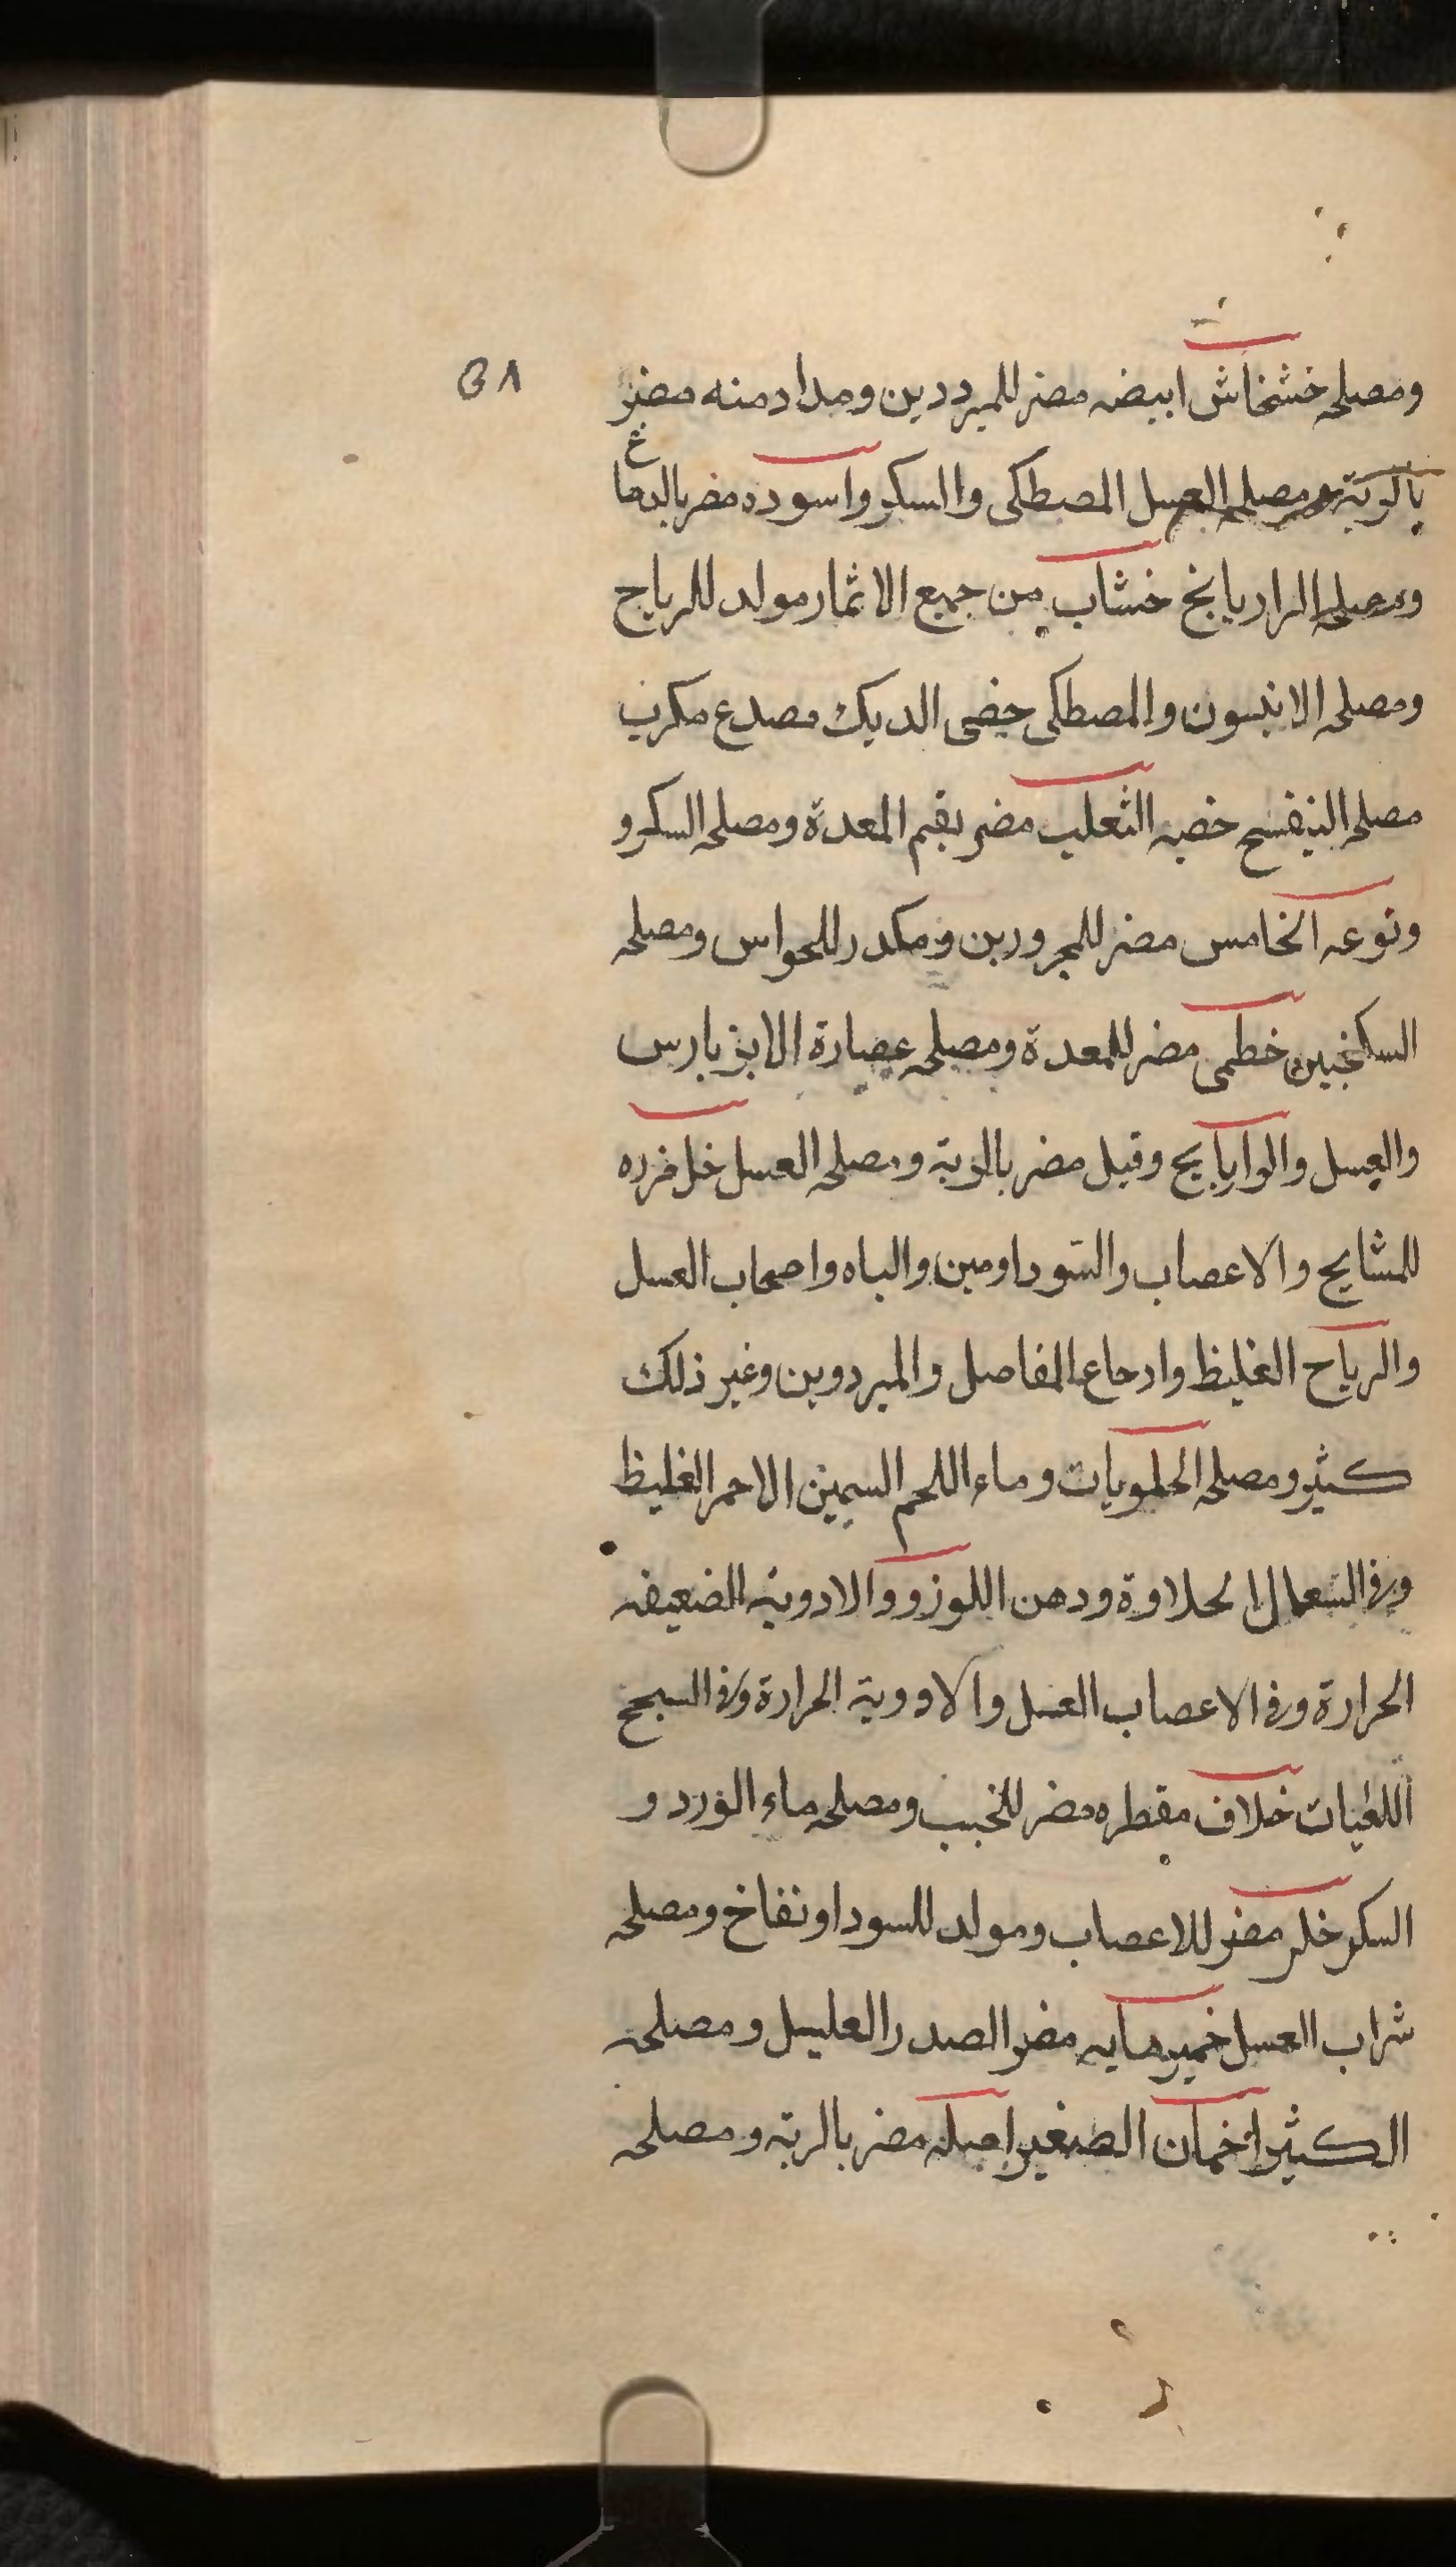 ٥٨
ومصلحه خشخاش ابيضه مضر للمبرددين ومدادمنه مضر
بالوية ومصلحه العسل المصطكى واالسكر واسوده مضر بالدماغ
ومصلحه الرازيانج خشاب من جميع الاثمار مولد للرياح
ومصلحه الانيسون والمصطكى خصى الديك مصدع مكرب
مصلحه البنفسج خصيه الثعلب مضر بفم المعدة ومصلحه السكر و
ونوعه الخامس مضر للمجرورين ومكدر للحواس ومصلحه
السكنجبين خطمى مضر للمعدة ومصلحه عصارة الابزبارس
والعسل والوايابح وقيل مضر بالوية ومصلحه العسل خل
للمشايح والاعصاب والسوداومين والباه واصحاب العسل
والرياح الغليظ واد حاع المفاصل والمبردوين وغير ذلك
كثير ومصلحه الحلويات وماء اللحم السمين الاحمر الغليظ
وفى السعال الحلاوة ودهن اللوز ووالادوية الضعيفه
الحرارة وفى الاعصاب العسل والاووية الحرارة وفى السبحج
اللعبات خلاف مقطره مضر ومصلحه ماء الورد و
السكر خلر مضر للاعصاب ومولد للسودا ونفاخ ومصلحه
شراب العسل خمير مايه مضر الصدر العليل ومصلحه
الكثيرا خمان الصغير اصله مضر بالرية ومصلحه